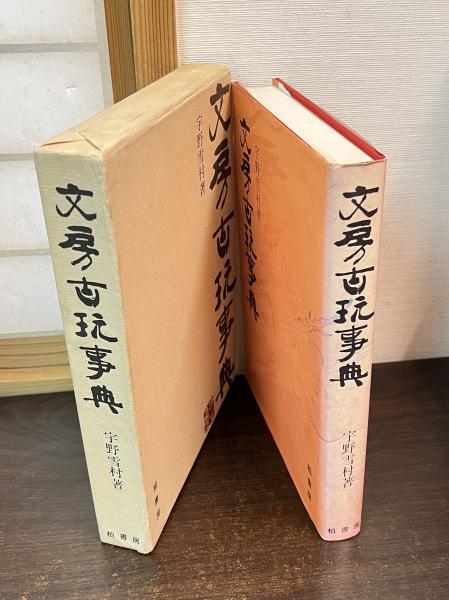 文房古玩事典
宇野雪村著
柏書房
文房古玩事典
宇野雪村著
柏書房
文房古玩事典
宇野雪村著
柏書房
文房古玩事典
宇野雪村著
柏書房